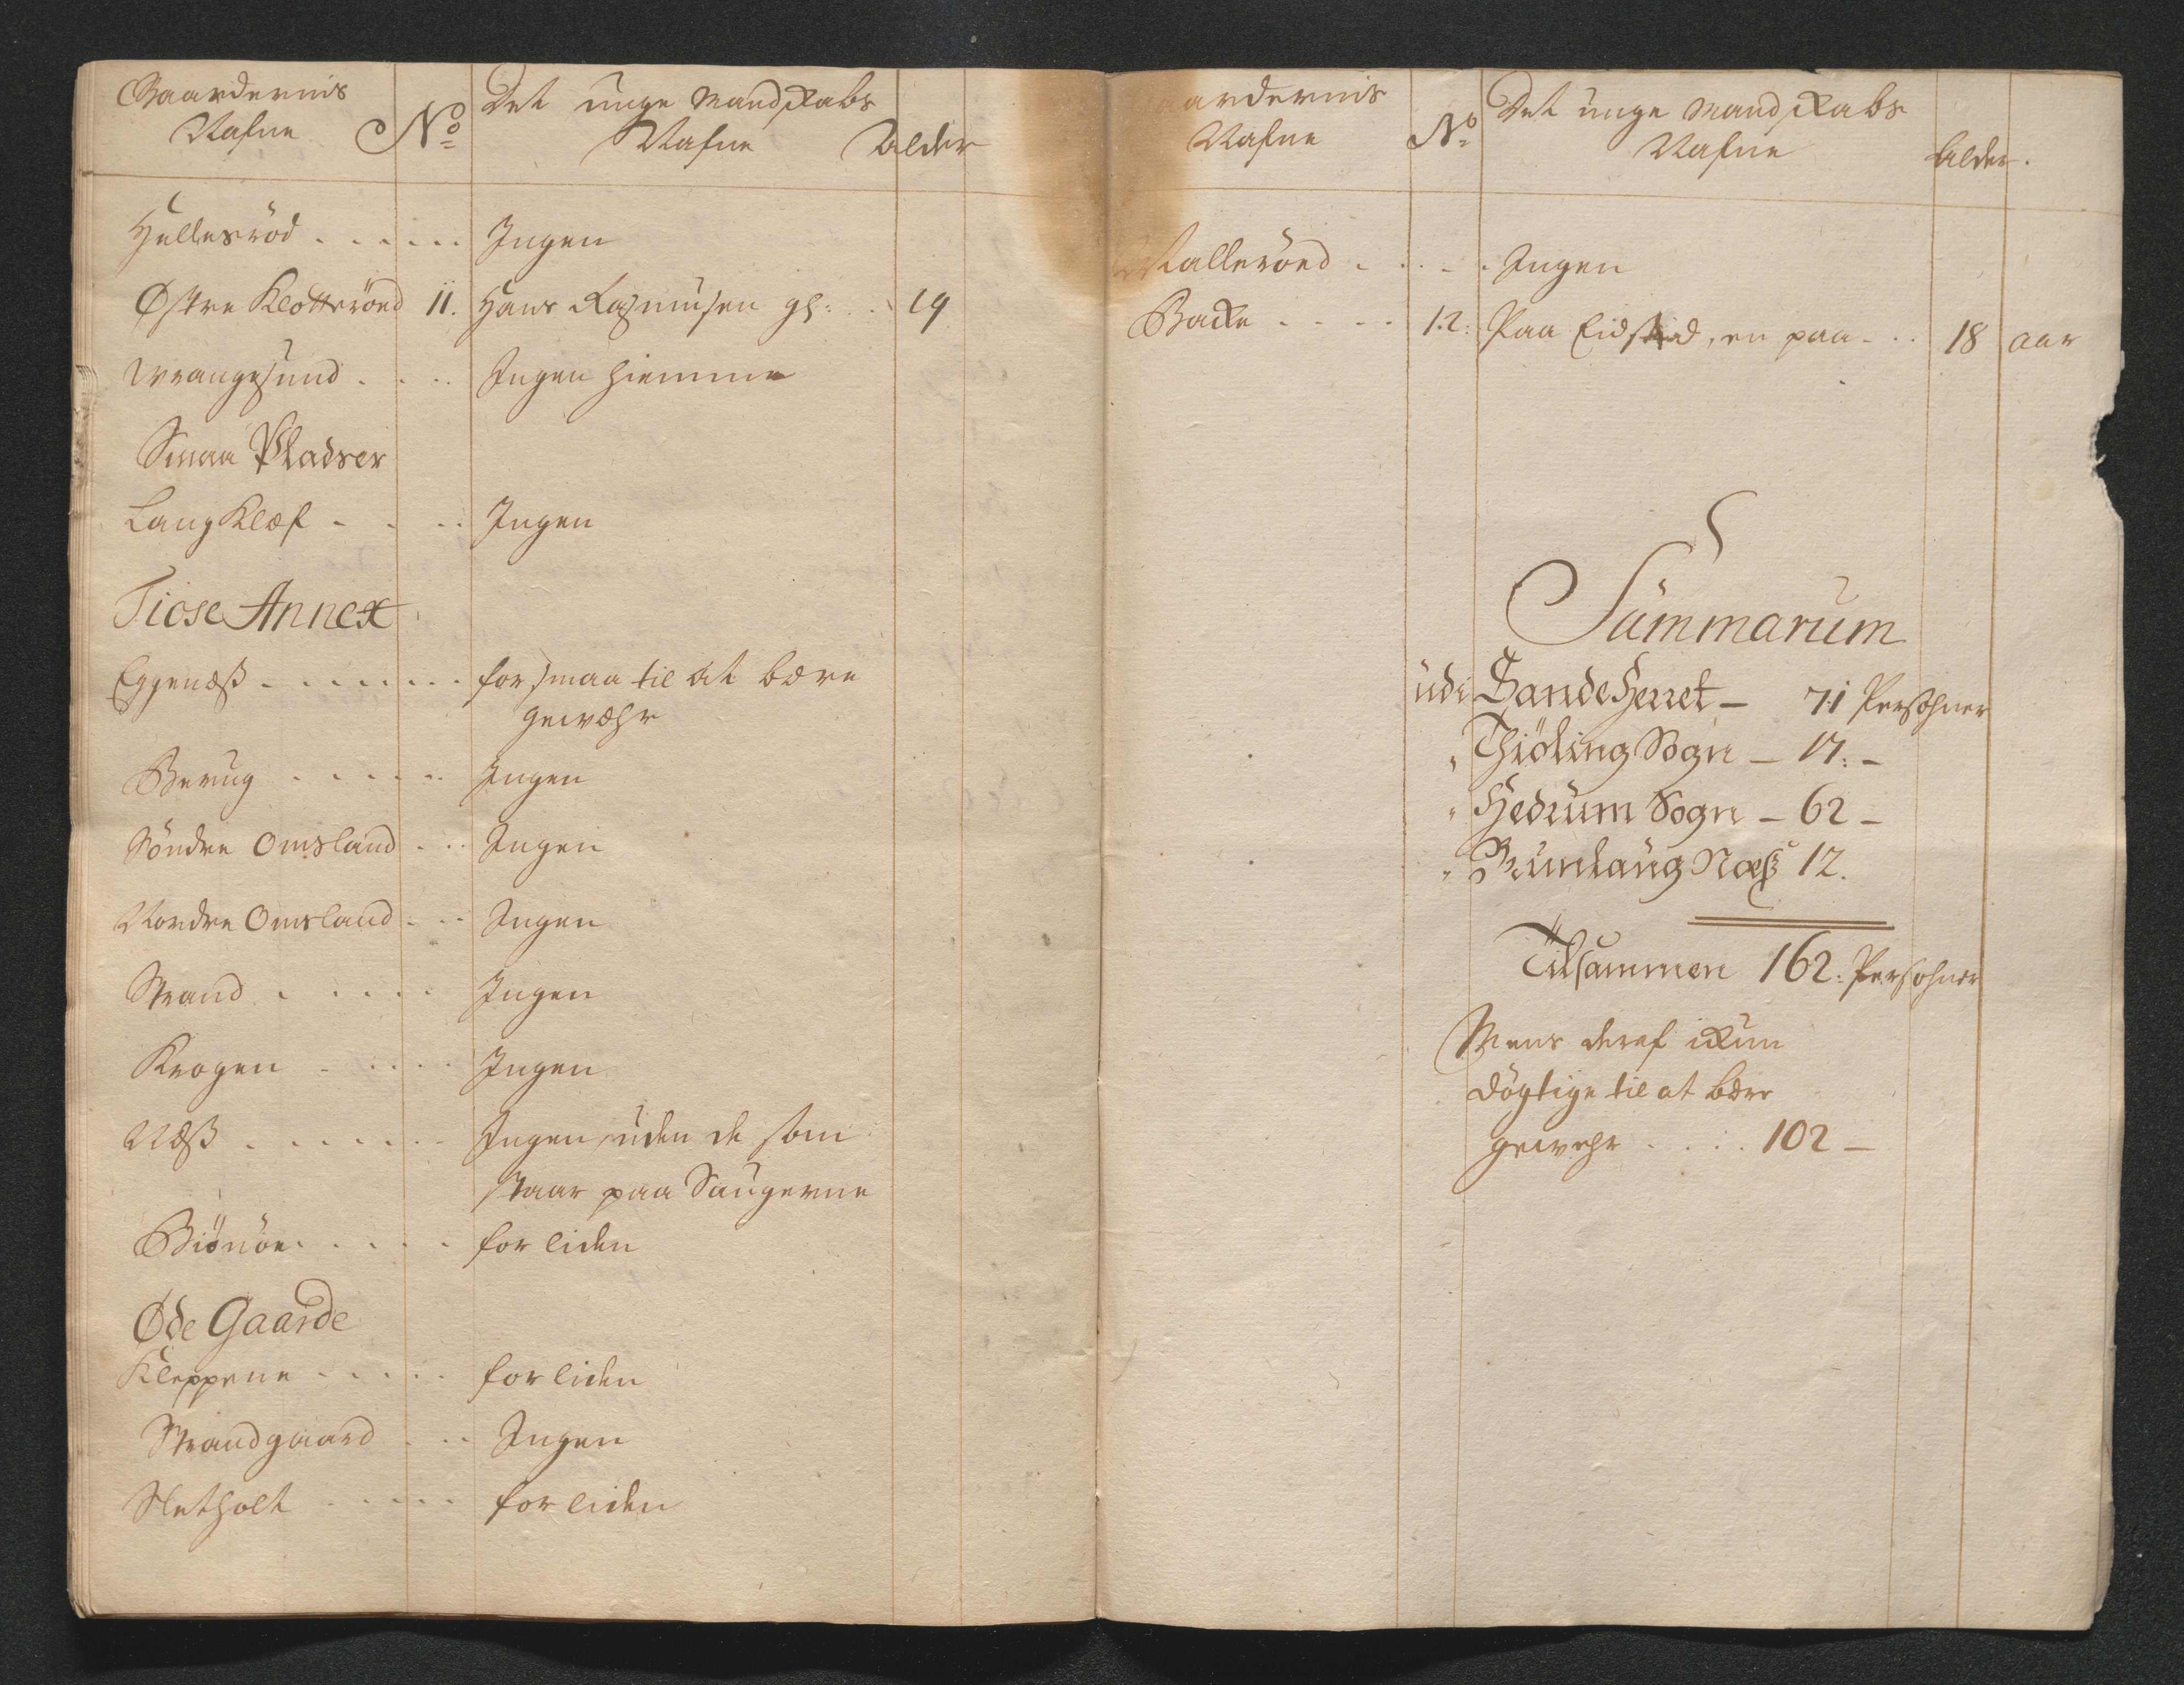 Gaardernis
Nafne
No
Det unge Mandskabs
Nafne
Alder
Hellesröd . . . . . . Ingen
Østre Klotteröed 11. Hans Rasmusen gl: . . 19
Wrangesund . . . . Ingen hiemme
Smaa Pladser
Langklæf - - - - Ingen
Tiose Annex
Eggenæss - . . . . . . for smaa til at bære
gewæhr
Berug . . . . . . Ingen
Söndre Omsland . . . Ingen
Nordre Omsland . . . Ingen
Strand . . . . . Ingen
Krogen . . . . . Ingen
Næss . . . . . . Ingen, uden de som
staar paa Saugerne
Biönöe . . . . . for liden
Øde Gaarde
Kleppene - . . . . for liden
Strandgaard . . . Ingen
Sletholt . . . . . for liden
aardernis
Nafne
No
Det unge Mandskabs
Nafne
Alder.
Valleröed - . . - . Ingen
Backe - - - - 12: Paa Eidsted, en paa - . . 18 aar
Summarum
udi Sandeherret - 71 Persohner
" Thiöling Sogn - 17. -
" Hedrum Sogn - 62 -
" Brunlaug Næss 12.
Tilsammen 162. Persohner
Mens deraf ickun
dögtige til at bære
gewehr . . . . . 102 -